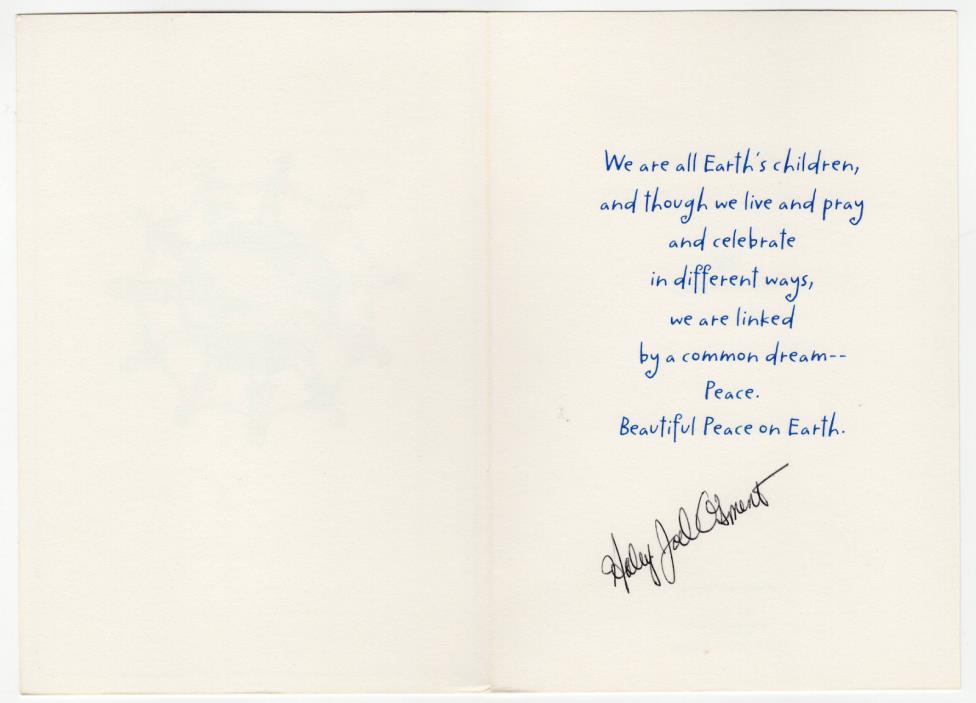 We are all Earth's children,
and though we live and pray
and celebrate
in different ways,
we are linked
by a common dream--
Peace.
Beautiful Peace on Earth.
Haley Joel Osment